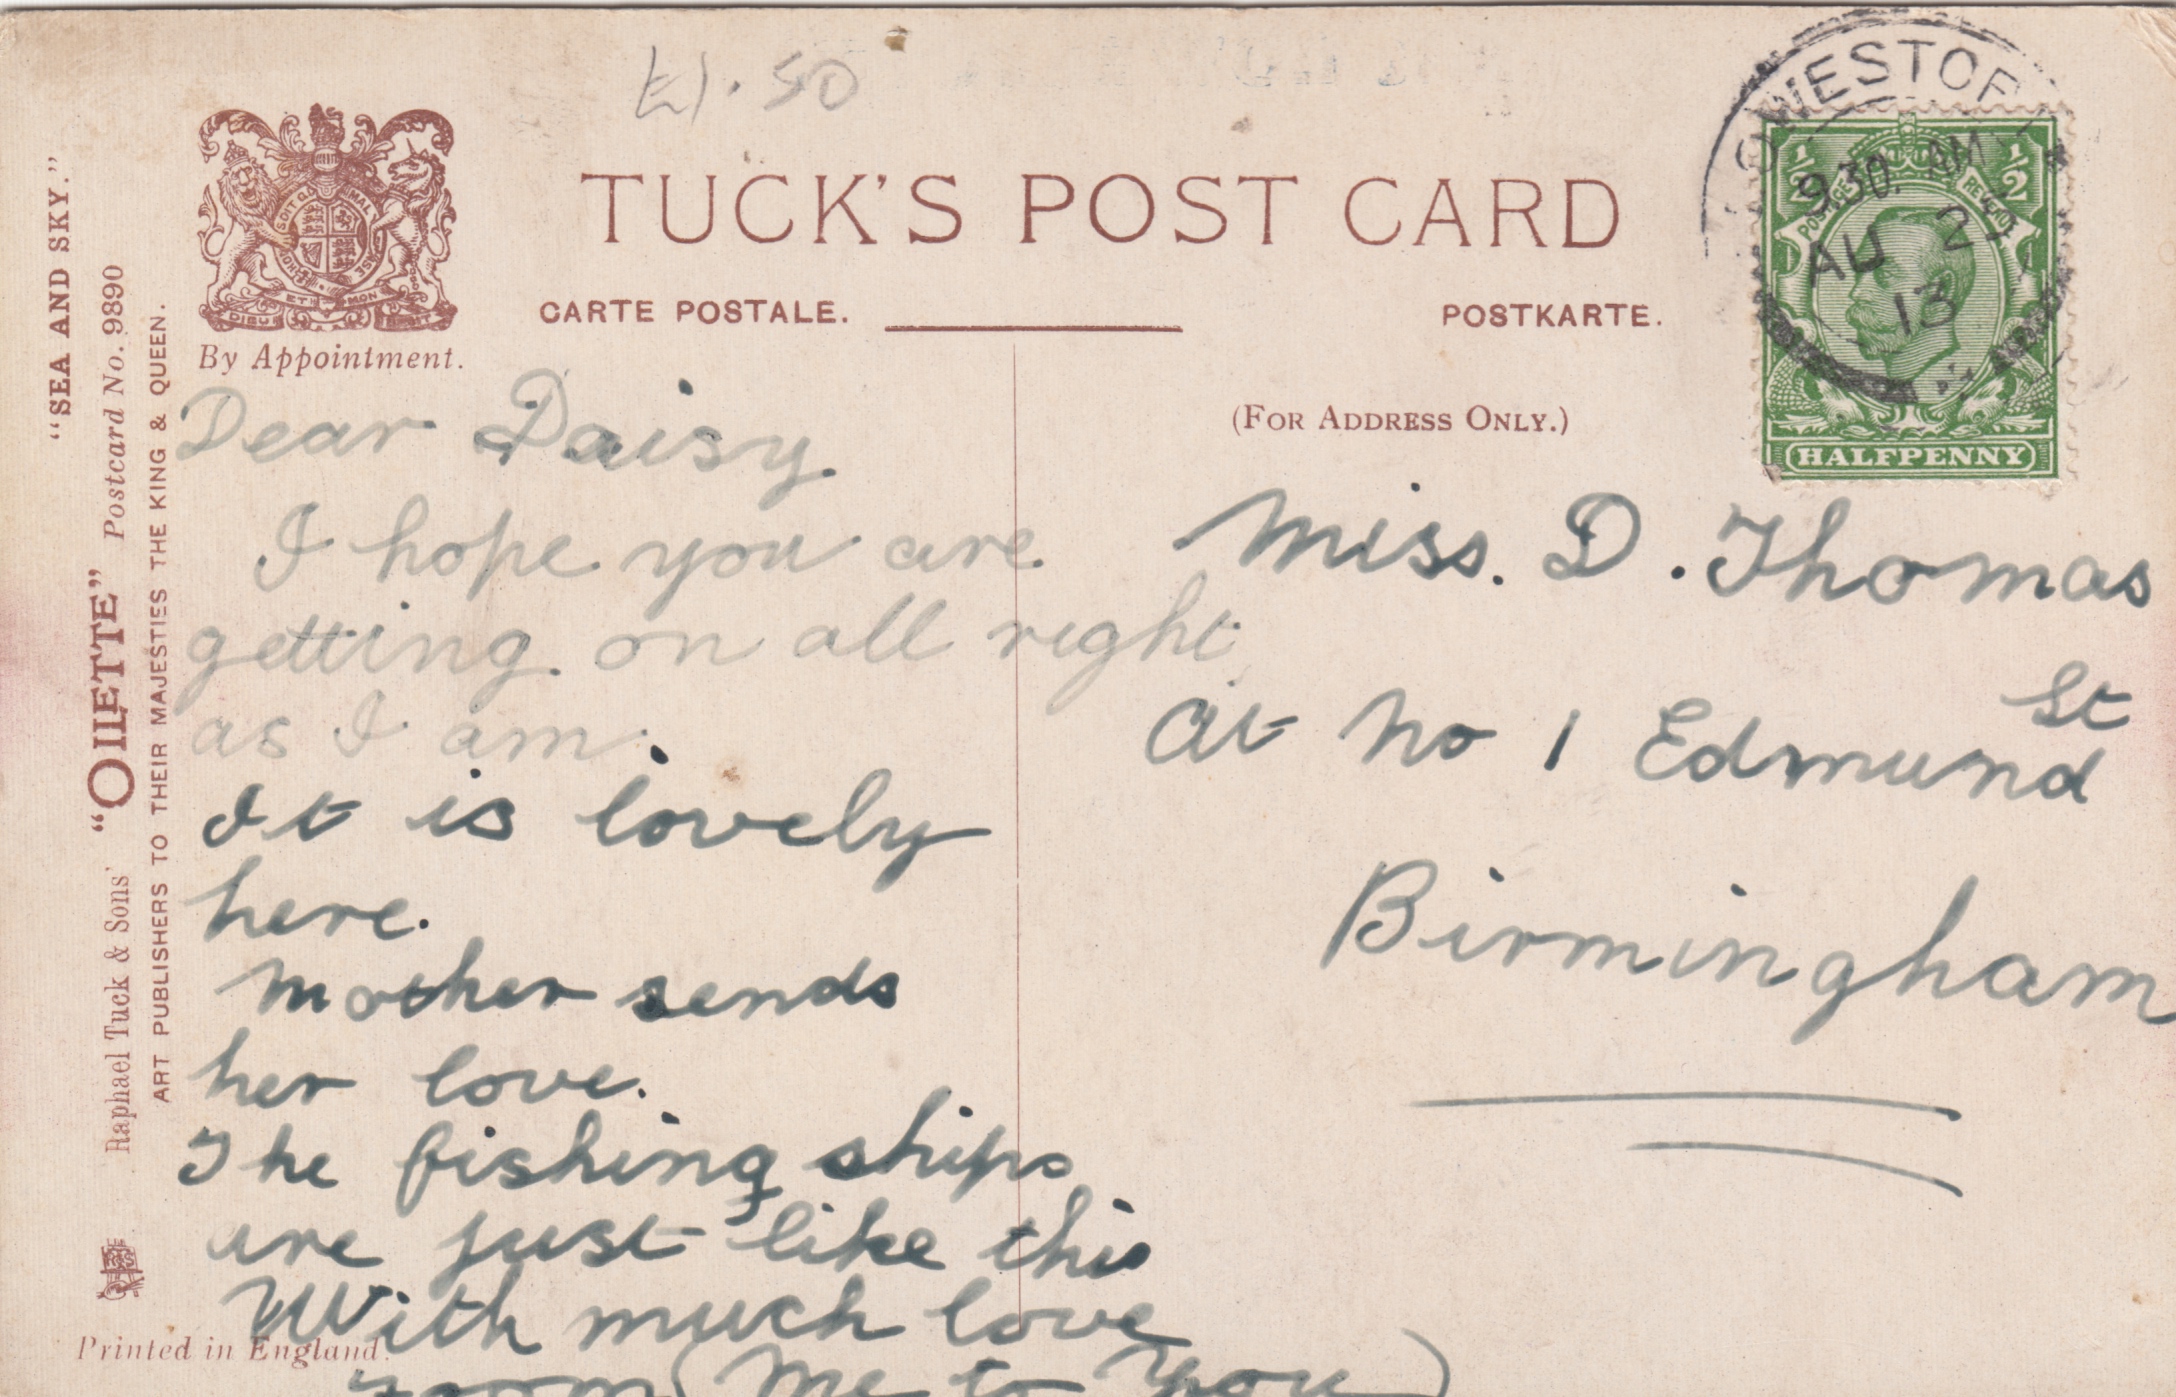 £1.50
TUCK'S POST CARD
CARTE POSTALE.
POSTKARTE.
By Appointment.
(FOR ADDRESS ONLY.)
"SEA AND SKY."
Raphael Tuck & Sons' "OILETTE" Postcard No. 9890
ART PUBLISHERS TO THEIR MAJESTIES THE KING & QUEEN.
Printed in England.
OWESTOF
9.30. AM
AU 25
13
1/2 1/2
POSTAGE REVENUE
HALFPENNY
DIEU ET MON
Dear Daisy.
I hope you are
getting on all right
as I am.
It is lovely
here.
Mother sends
her love.
The fishing ships
are just like this
With much love
(Me to You)
Miss. D. Thomas
At No 1 Edmund St
Birmingham